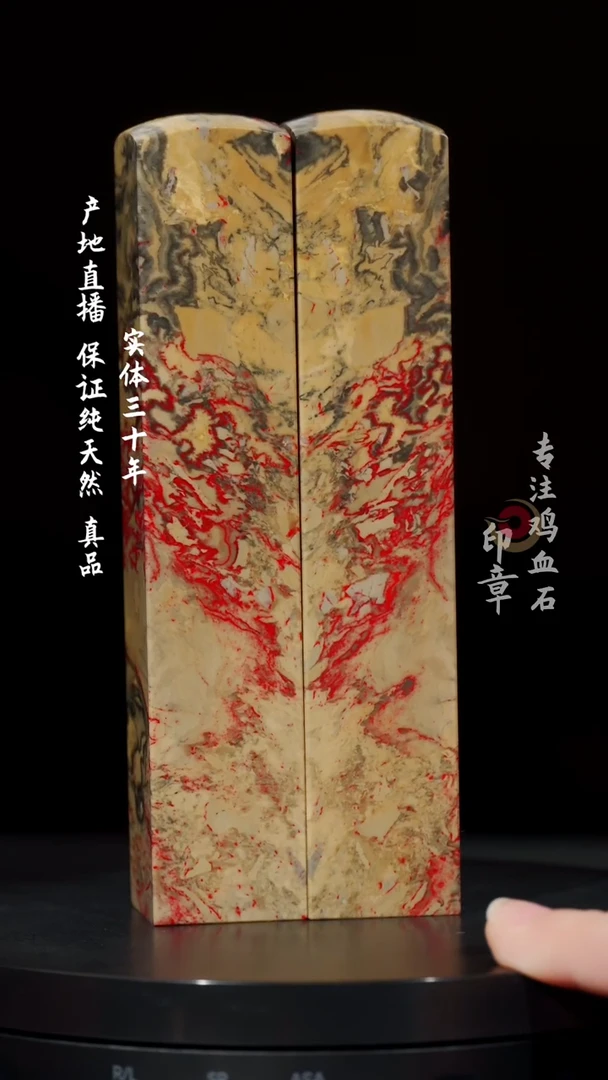 产地直播 保证纯天然 真品
实体三十年
专注鸡血石
印章
R/L